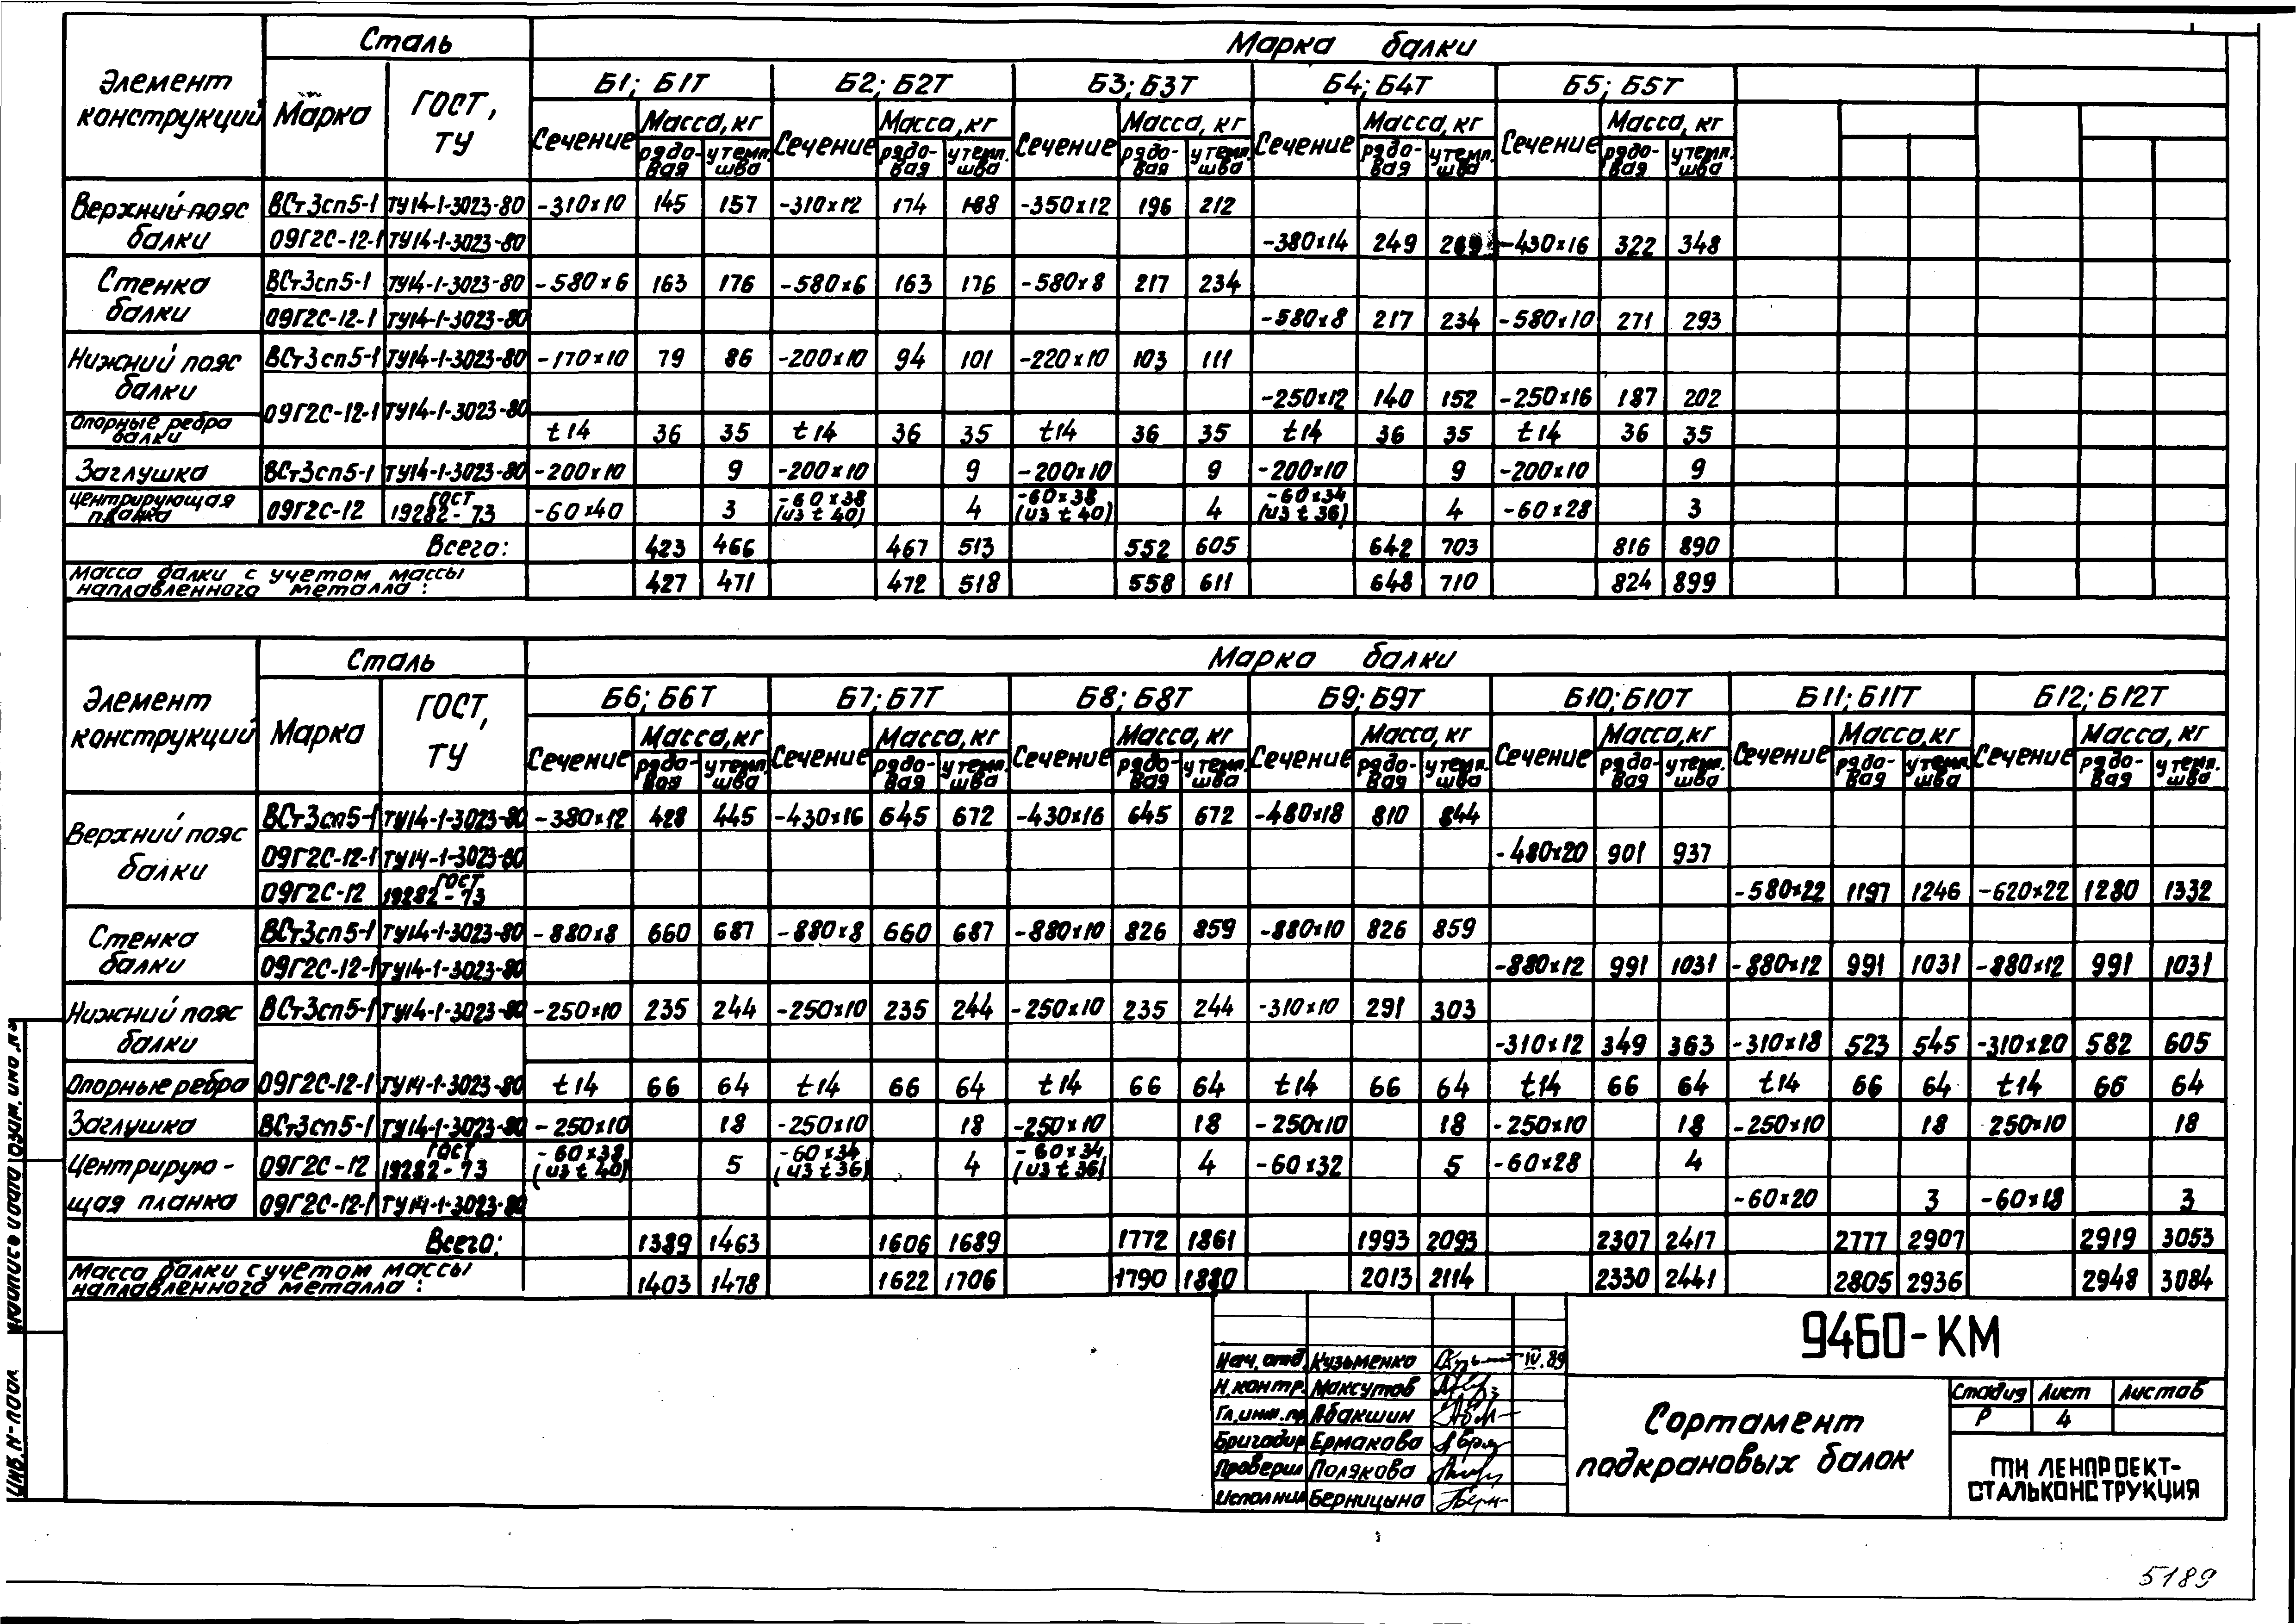 Элемент конструкций Сталь Марка балки
Марка ГОСТ, ТУ Б1; Б1Т Б2; Б2Т Б3; Б3Т Б4; Б4Т Б5; Б5Т
Сечение Масса, кг Сечение Масса, кг Сечение Масса, кг Сечение Масса, кг Сечение Масса, кг
рядо-вая у темп. шва рядо-вая у темп. шва рядо-вая у темп. шва рядо-вая у темп. шва рядо-вая у темп. шва
Верхний пояс ВСт3сп5-1 ТУ14-1-3023-80 -310×10 145 157 -310×12 174 188 -350×12 196 212
балки 09Г2С-12-1 ТУ14-1-3023-80 -380×14 249 269 -430×16 322 348
Стенка ВСт3сп5-1 ТУ14-1-3023-80 -580×6 163 176 -580×6 163 176 -580×8 217 234
балки 09Г2С-12-1 ТУ14-1-3023-80 -580×8 217 234 -580×10 271 293
Нижний пояс ВСт3сп5-1 ТУ14-1-3023-80 -170×10 79 86 -200×10 94 101 -220×10 103 111
балки 09Г2С-12-1 ТУ14-1-3023-80 -250×12 140 152 -250×16 187 202
Опорные ребра балки t14 36 35 t14 36 35 t14 36 35 t14 36 35 t14 36 35
Заглушка ВСт3сп5-1 ТУ14-1-3023-80 -200×10 9 -200×10 9 -200×10 9 -200×10 9 -200×10 9
Центрирующая планка 09Г2С-12 ГОСТ 19282-73 -60×40 3 -60×38 (из t 40) 4 -60×38 (из t 40) 4 -60×34 (из t 36) 4 -60×28 3
Всего: 423 466 467 513 552 605 642 703 816 890
Масса балки с учетом массы наплавленного металла: 427 471 472 518 558 611 648 710 824 899
Элемент конструкций Сталь Марка балки
Марка ГОСТ, ТУ Б6; Б6Т Б7; Б7Т Б8; Б8Т Б9; Б9Т Б10; Б10Т Б11; Б11Т Б12; Б12Т
Сечение Масса, кг Сечение Масса, кг Сечение Масса, кг Сечение Масса, кг Сечение Масса, кг Сечение Масса, кг Сечение Масса, кг
рядо-вая у темп. шва рядо-вая у темп. шва рядо-вая у темп. шва рядо-вая у темп. шва рядо-вая у темп. шва рядо-вая у темп. шва рядо-вая у темп. шва
Верхний пояс ВСт3сп5-1 ТУ14-1-3023-80 -380×12 428 445 -430×16 645 672 -430×16 645 672 -480×18 810 844
балки 09Г2С-12-1 ТУ14-1-3023-80 -480×20 901 937
09Г2С-12 ГОСТ 19282-73 -580×22 1197 1246 -620×22 1280 1332
Стенка ВСт3сп5-1 ТУ14-1-3023-80 -880×8 660 687 -880×8 660 687 -880×10 826 859 -880×10 826 859
балки 09Г2С-12-1 ТУ14-1-3023-80 -880×12 991 1031 -880×12 991 1031 -880×12 991 1031
Нижний пояс ВСт3сп5-1 ТУ14-1-3023-80 -250×10 235 244 -250×10 235 244 -250×10 235 244 -310×10 291 303
балки -310×12 349 363 -310×18 523 545 -310×20 582 605
Опорные ребра 09Г2С-12-1 ТУ14-1-3023-80 t14 66 64 t14 66 64 t14 66 64 t14 66 64 t14 66 64 t14 66 64 t14 66 64
Заглушка ВСт3сп5-1 ТУ14-1-3023-80 -250×10 18 -250×10 18 -250×10 18 -250×10 18 -250×10 18 -250×10 18 250×10 18
Центрирую- 09Г2С-12 ГОСТ 19282-73 -60×38 (из t 40) 5 -60×34 (из t 36) 4 -60×34 (из t 36) 4 -60×32 5 -60×28 4
щая планка 09Г2С-12-1 ТУ14-1-3023-80 -60×20 3 -60×18 3
Всего: 1389 1463 1606 1689 1772 1861 1993 2093 2307 2417 2777 2907 2919 3053
Масса балки с учетом массы наплавленного металла: 1403 1478 1622 1706 1790 1880 2013 2114 2330 2441 2805 2936 2948 3084
9460-КМ
Нач. отд. Кузьменко IV.89
Н.контр. Максутов
Гл.инж.пр. Абакшин
Бригадир Ермакова
Проверил Полякова
Исполнил Берницына
Сортамент
подкрановых балок
Стадия Лист Листов
Р 4
ГПИ ЛЕНПРОЕКТ-
СТАЛЬКОНСТРУКЦИЯ
Инв. N-подл. Подпись и дата Взам. инв. N
5189